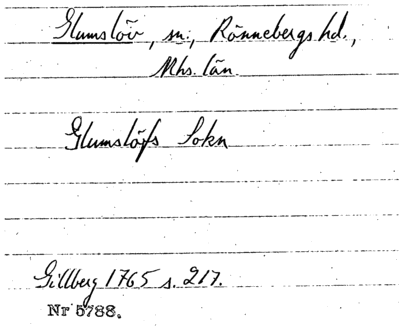 Glumslöv, sn., Rönnebergs hd.,
Mhs. län.
Glumslöfs Sokn
Gillberg 1765 s. 217.
Nr 5788.